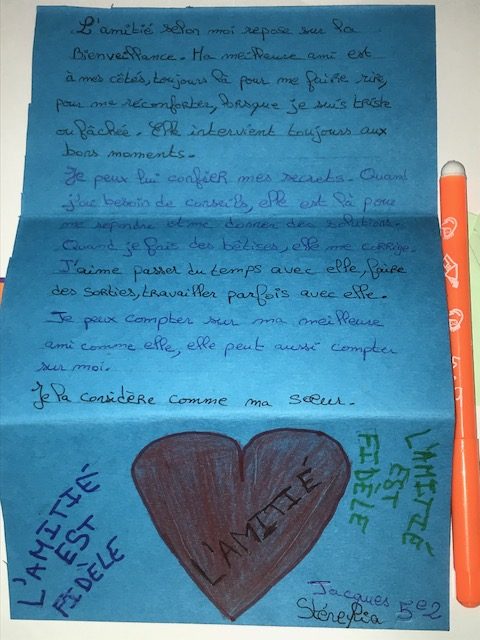 L'amitié selon moi repose sur la
Bienveillance. Ma meilleure ami est
à mes côtés, toujours là pour me faire rire,
pour me réconforter, lorsque je suis triste
ou fâchée. Elle intervient toujours aux
bons moments.
Je peux lui confier mes secrets. Quand
j'ai besoin de conseils, elle est là pour
me repondre et me donner des solutions.
Quand je fais des bêtises, elle me corrige.
J'aime passer du temps avec elle, faire
des sorties, travailler parfois avec elle.
Je peux compter sur ma meilleure
ami comme elle, elle peut aussi compter
sur moi.
Je la considère comme ma sœur.
L'AMITIÉ
EST
FIDÈLE
L'AMITIÉ
L'AMITIÉ
EST
FIDÈLE
Jacques 5e2